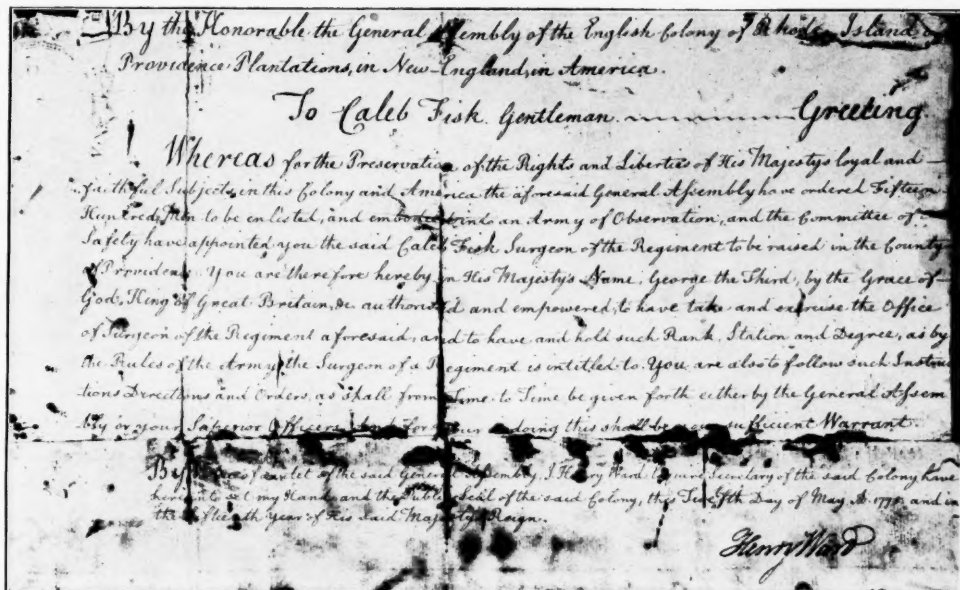 By the Honorable the General Assembly of the English Colony of Rhode Island &
Providence Plantations, in New-England, in America.
To Caleb Fisk Gentleman Greeting.
Whereas for the Preservation of the Rights and Liberties of His Majestys loyal and
faithful Subjects in this Colony and America the aforesaid General Assembly have ordered Fifteen
Hundred Men to be enlisted, and embodied into an Army of Observation, and the Committee of
Safety have appointed you the said Caleb Fisk Surgeon of the Regiment to be raised in the County
of Providence: You are therefore hereby in His Majesty's Name, George the Third, by the Grace of
God, King of Great Britain, &c authorised and empowered, to have take and exercise the Office
of Surgeon of the Regiment aforesaid, and to have and hold such Rank, Station and Degree, as by
the Rules of the Army the Surgeon of a Regiment is intitled to. You are also to follow such Instruc
tions Directions and Orders, as shall from Time to Time be given forth either by the General Assem
bly or your Superior Officers. And for your so doing this shall be your sufficient Warrant.
By of an Act of the said General Assembly, I Henry Ward Secretary of the said Colony have
hereunto set my Hand and the Public Seal of the said Colony, this Twelfth Day of May A.D. 1775 and in
the Fifteenth Year of His said Majesty's Reign.
Henry Ward